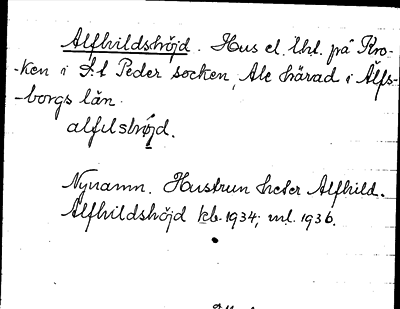 Alfhildshöjd. Hus el. lht. på Kro-
-ken i S:t Peder socken, Ale härad i Älfs-
-borgs län.
alfilshöjd.
Nynamn. Hustrun heter Alfhild.
Alfhildshöjd kb. 1934; ml. 1936.